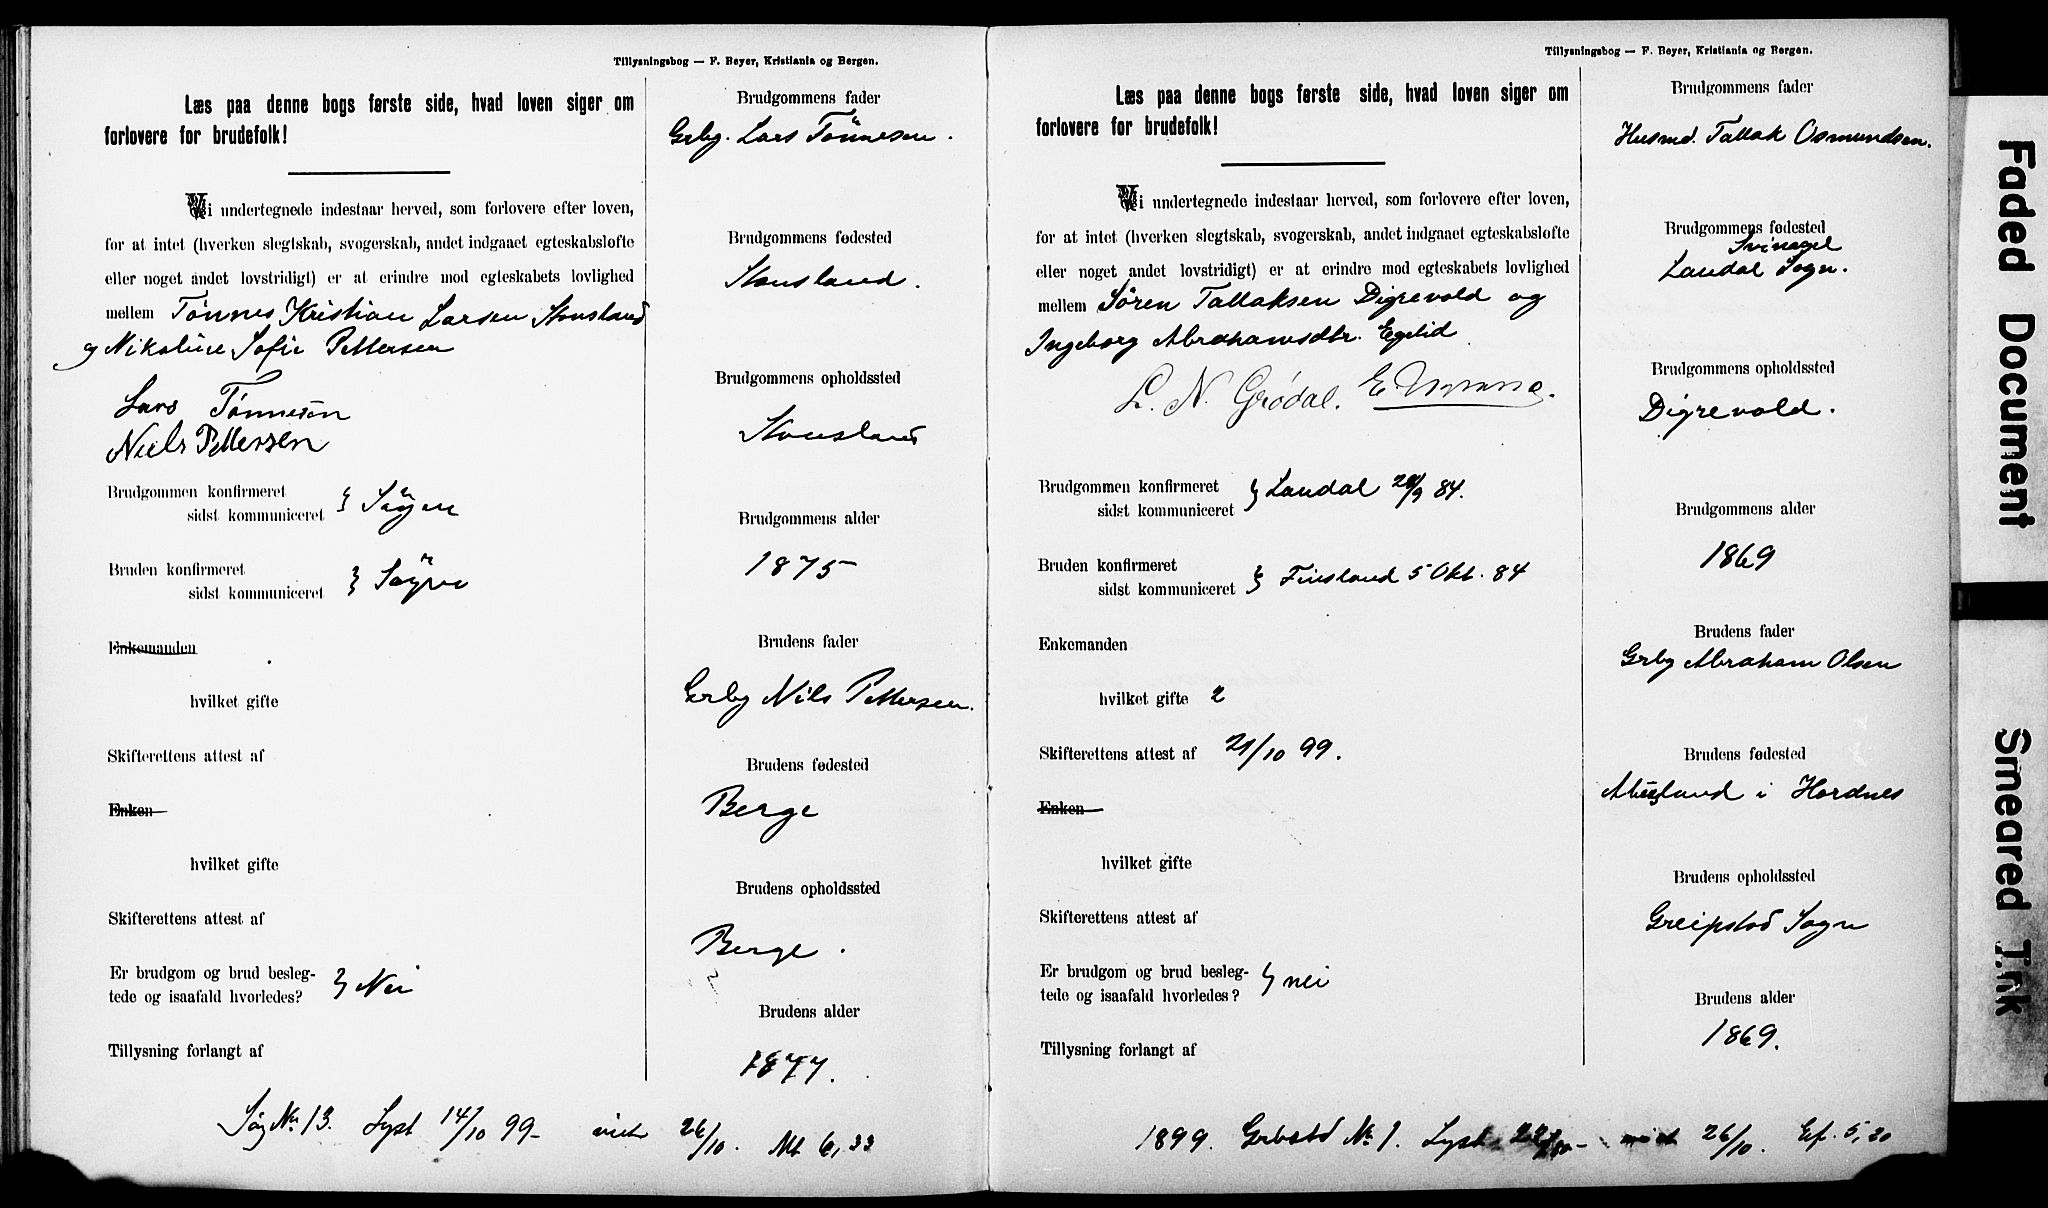 Tillysningsbog — F. Beyer, Kristiania og Bergen.
Læs paa denne bogs første side, hvad loven siger om
forlovere for brudefolk!
Vi undertegnede indestaar herved, som forlovere efter loven,
for at intet (hverken slegtskab, svogerskab, andet indgaaet egteskabsløfte
eller noget andet lovstridigt) er at erindre mod egteskabets lovlighed
mellem Tönnes Kristian Larsen Stousland
og Nikoline Sofie Pettersen
Lars Tönnesen
Niels Pettersen
Brudgommen konfirmeret
sidst kommuniceret } Søgne
Bruden konfirmeret
sidst kommuniceret } Søgne
Enkemanden
hvilket gifte
Skifterettens attest af
Enken
hvilket gifte
Skifterettens attest af
Er brudgom og brud besleg-
tede og isaafald hvorledes? } Nei
Tillysning forlangt af
Brudgommens fader
Grbg. Lars Tönnesen.
Brudgommens fødested
Stousland.
Brudgommens opholdssted
Stousland
Brudgommens alder
1875
Brudens fader
Grbg Nils Pettersen.
Brudens fødested
Berge
Brudens opholdssted
Berge.
Brudens alder
1877.
Søg No 13. Lyst 14/10 99 - viet 26/10. Mt 6,33
Tillysningsbog — F. Beyer, Kristiania og Bergen.
Læs paa denne bogs første side, hvad loven siger om
forlovere for brudefolk!
Vi undertegnede indestaar herved, som forlovere efter loven,
for at intet (hverken slegtskab, svogerskab, andet indgaaet egteskabsløfte
eller noget andet lovstridigt) er at erindre mod egteskabets lovlighed
mellem Sören Tallaksen Digrevold og
Ingeborg Abrahamsdtr. Egelid
L. N. Grödal. E
Brudgommen konfirmeret
sidst kommuniceret } Laudal /9 84.
Bruden konfirmeret
sidst kommuniceret } Finsland 5 Okt. 84
Enkemanden
hvilket gifte 2
Skifterettens attest af 21/10 99.
Enken
hvilket gifte
Skifterettens attest af
Er brudgom og brud besleg-
tede og isaafald hvorledes? } nei
Tillysning forlangt af
Brudgommens fader
Husmd. Tallak Osmundsen.
Brudgommens fødested
Svinagel
Laudal Sogn.
Brudgommens opholdssted
Digrevold.
Brudgommens alder
1869
Brudens fader
Grbg Abraham Olsen
Brudens fødested
i Hordnes
Brudens opholdssted
Greipstad Sogn
Brudens alder
1869.
1899. Grbstd No 1. Lyst - viet 26/10. Ef. 5,20
Faded Document
Smeared Ink